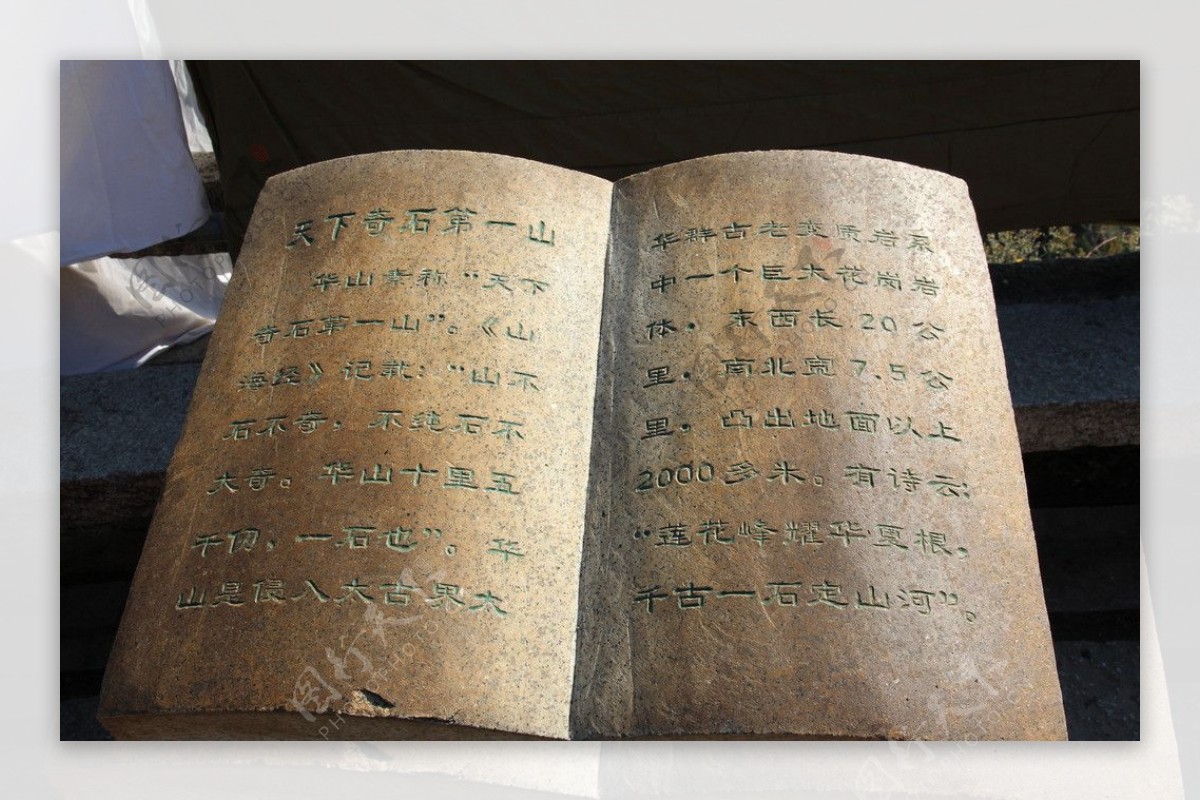 天下奇石第一山
华山素称“天下
奇石第一山”。《山
海经》记载：“山不
石不奇，不纯石不
大奇。华山十里五
千仞，一石也”。华
山是侵入太古界太
华群古老变质岩系
中一个巨大花岗岩
体，东西长20公
里，南北宽7.5公
里，凸出地面以上
2000多米。有诗云：
“莲花峰耀华夏根，
千古一石定山河”。
图行天下
PHOTOPHOTO